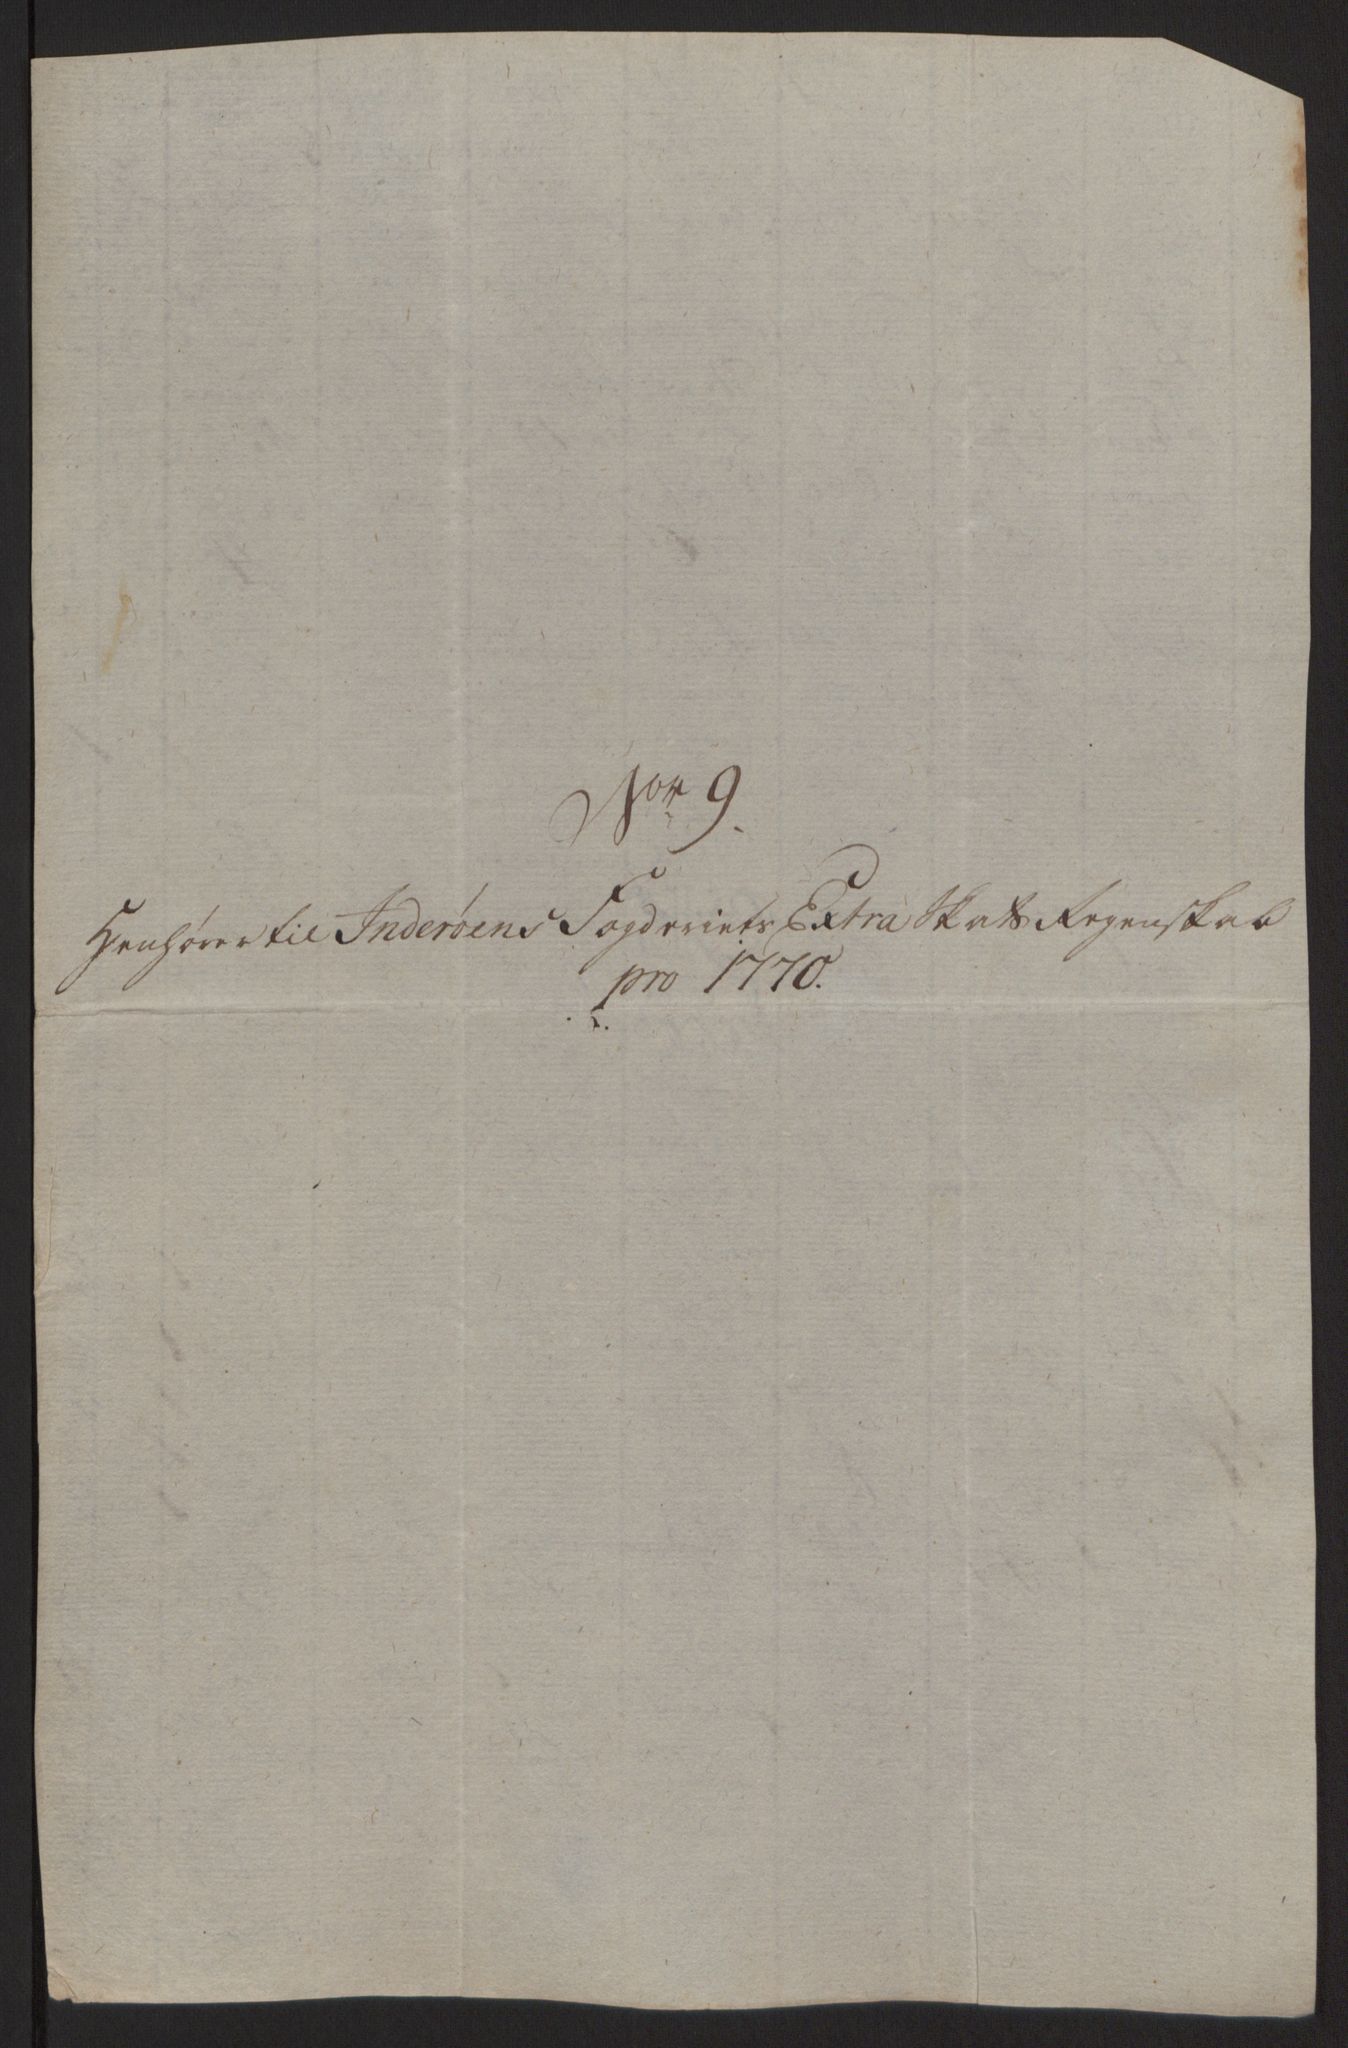 No: 9.
Henhører til Inderøens Fogderiets Extra Skatts Regenskab
pro 1770.